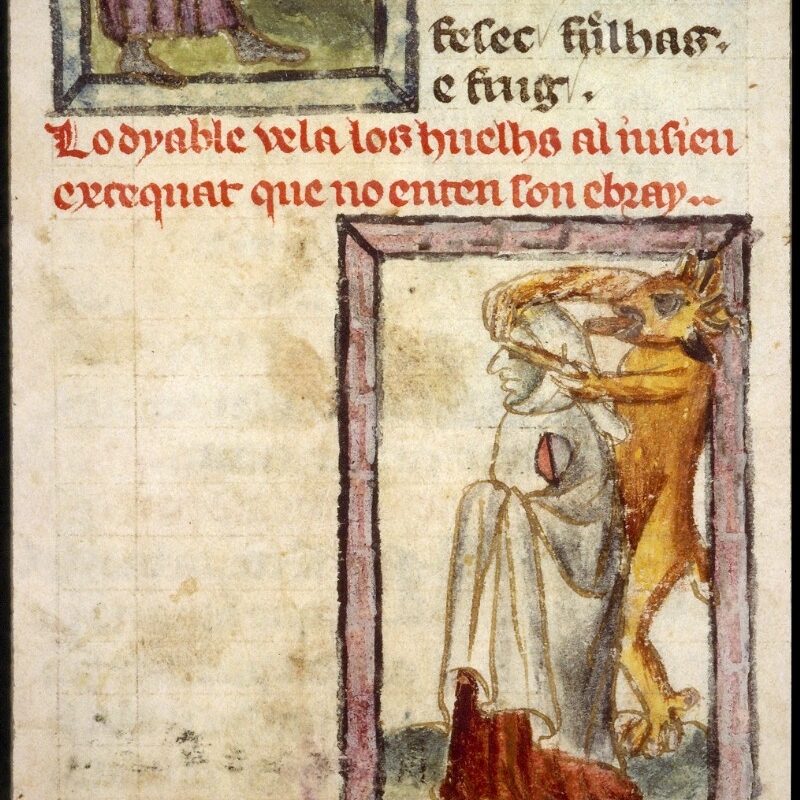 fesec fulhas.
e fuig.
Lo dyable vela los huelhs al iusieu
excequat que no enten son ebray..